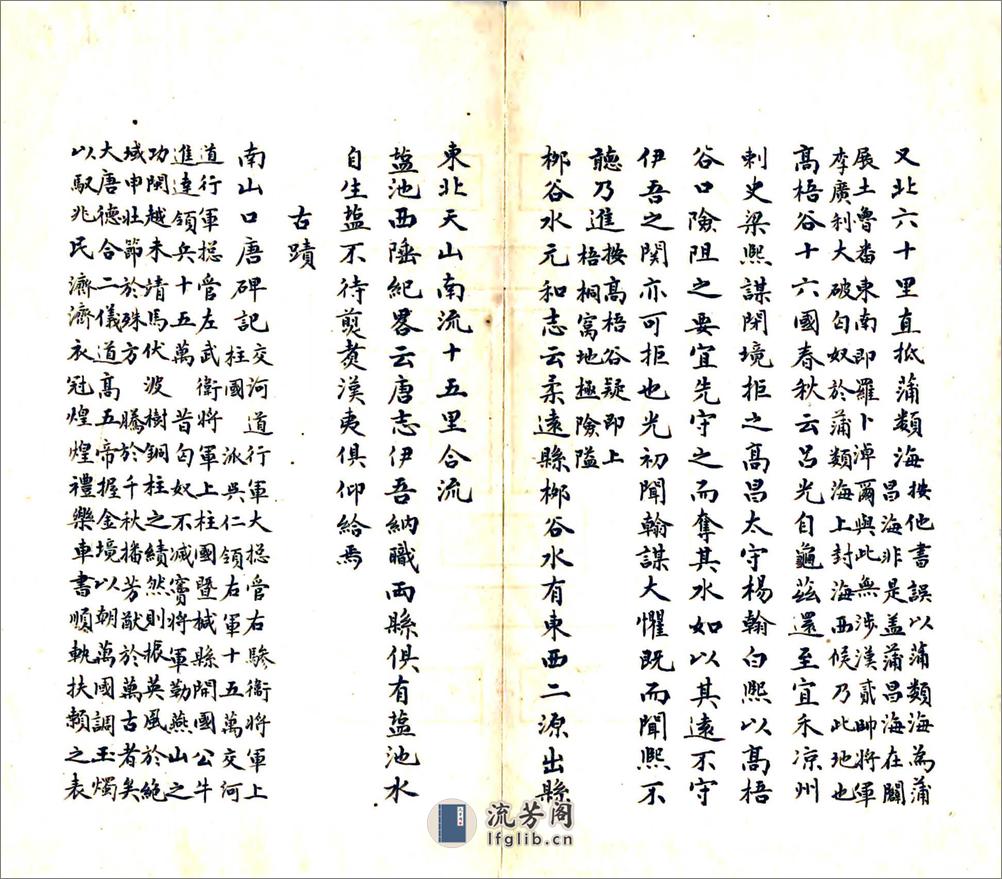 又北六十里直抵蒲類海
按他書誤以蒲類海為蒲
昌海非是盖蒲昌海在闢
展土魯番東南即羅卜淖爾與此無涉漢貳帥將軍
李廣利大破匈奴於蒲類海上封海西候乃此地也
髙梧谷十六國春秋云呂光自龜茲還至宜禾凉州
刺史梁熙謀閉境拒之髙昌太守楊翰白熙以髙梧
谷口險阻之要宜先守之而奪其水如以其遠不守
伊吾之関亦可拒也光初聞翰謀大懼既而聞熙不
聼乃進
按髙梧谷疑即上
梧桐窩地極險隘
柳谷水元和志云柔遠縣柳谷水有東西二源出縣
東北天山南流十五里合流
塩池西陲紀畧云唐志伊吾納職兩縣俱有塩池水
自生塩不待煎煑漢夷俱仰給焉
古蹟
南山口唐碑記
交河道行軍大揔管右驂衞將軍上
柱國派吳仁領右軍十五萬交河
道行軍揔管左武衞將軍上柱國暨棫縣開國公牛
進達領兵十五萬昔匈奴不滅竇將軍勒燕山之
功閞越未靖馬伏波樹銅柱之績然則振英風於絶
域申壮節於殊方騰於千秋播芳猷於萬古者矣
大唐德合二儀道髙五帝握金境以朝萬國調玉燭
以馭兆民濟濟衣冠煌煌禮樂車書順軌扶頼之表
流芳阁
lfglib.cn